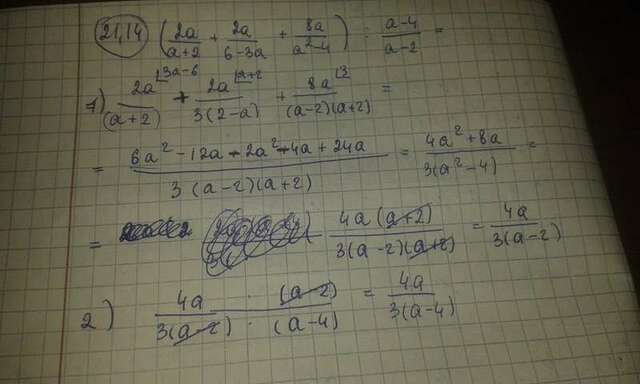 21,14 (2a/(a+2) + 2a/(6-3a) + 8a/(a²-4)) : (a-4)/(a-2) =
1) 2a⌊3a-6/(a+2) + 2a⌊a+2/3(2-a) + 8a⌊3/(a-2)(a+2) =
= (6a² - 12a - 2a² - 4a + 24a)/(3(a-2)(a+2)) = (4a² + 8a)/(3(a²-4)) =
= 4a(a+2)/(3(a-2)(a+2)) = 4a/(3(a-2))
2) (4a · (a-2))/(3(a-2) · (a-4)) = 4a/(3(a-4))